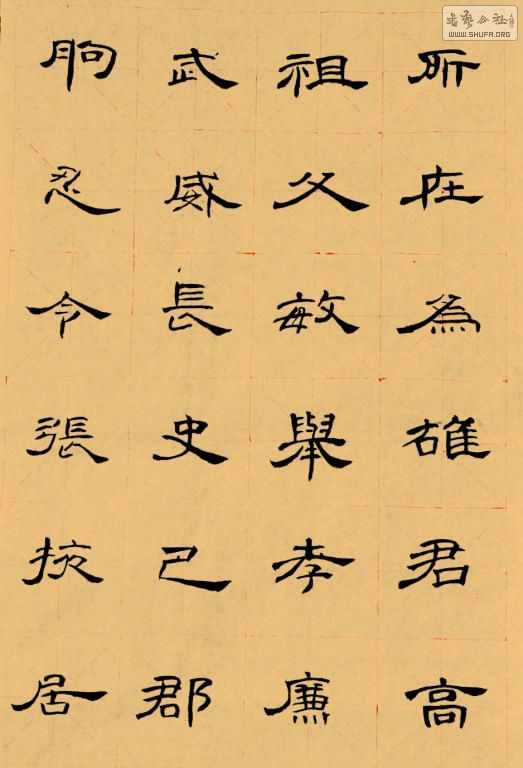 所在為雄君高
祖父敏舉孝廉
武威長史巴郡
朐忍令張掖居
書藝公社
WWW.SHUFA.ORG